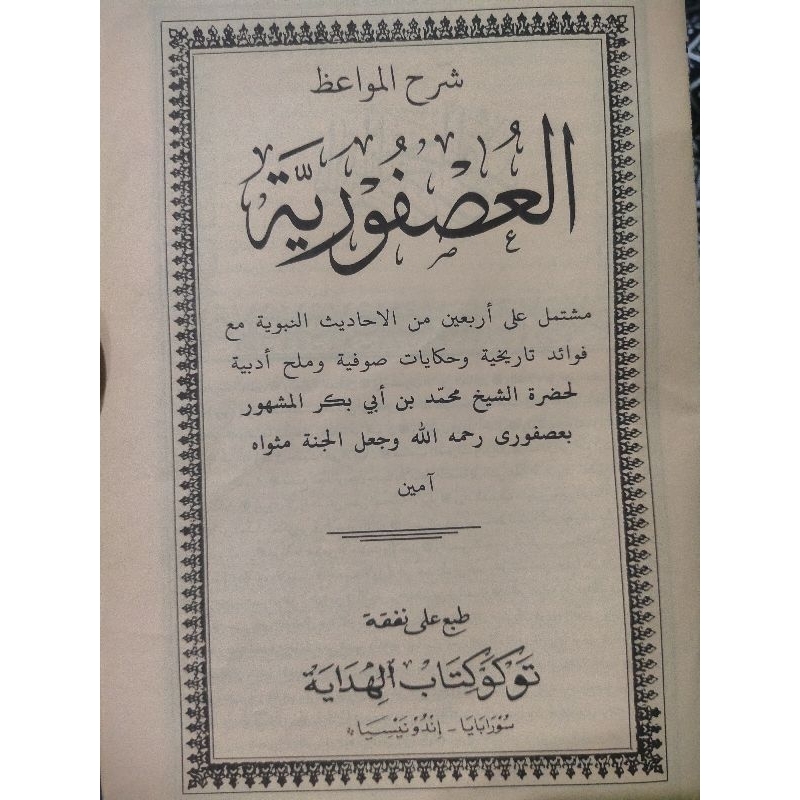 شرح المواعظ
العُصْفُوْرِيَّة
مشتمل على أربعين من الاحاديث النبوية مع
فوائد تاريخية وحكايات صوفية وملح أدبية
لحضرة الشيخ محمّد بن أبي بكر المشهور
بعصفورى رحمه الله وجعل الجنة مثواه
آمين
طبع على نفقة
تَوكَو كِتَابْ الهِدَايَة
سُوْرَابَايَا - اِنْدُوْنَيْسِيَا